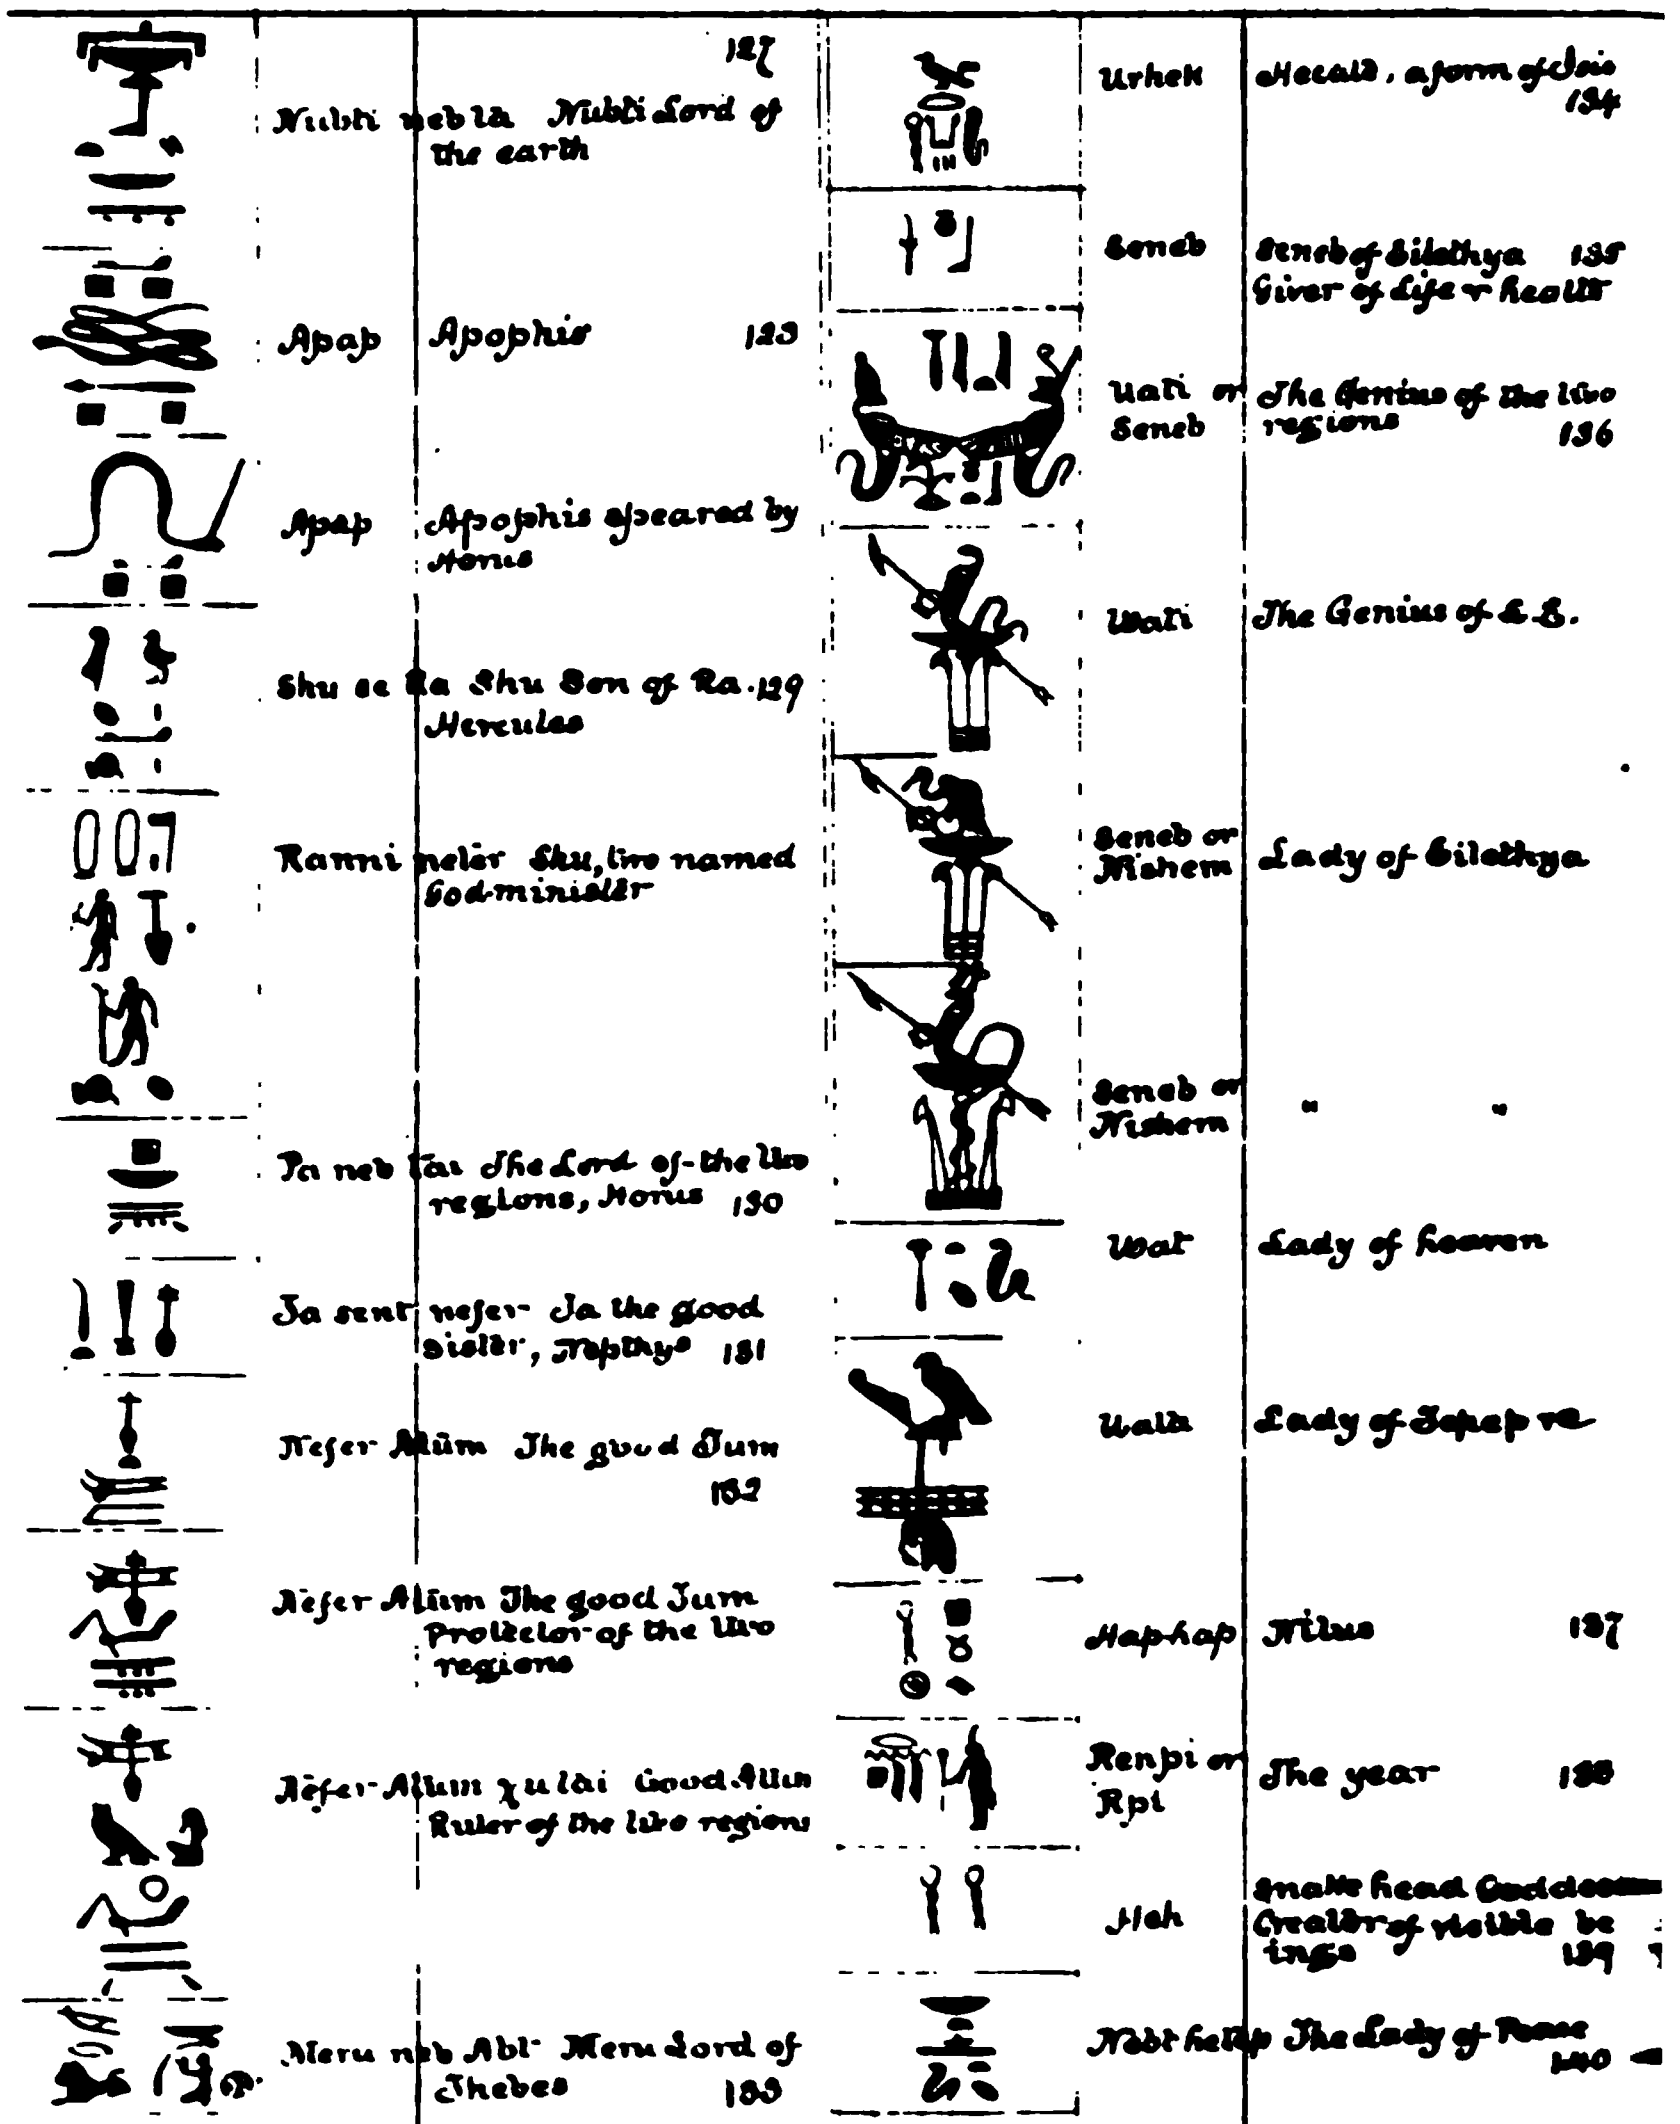 127
Nubti neb ta Nubti Lord of
the earth
Apap Apophis 123
Apap Apophis speared by
Horus
Shu se Ra Shu Son of Ra. 129
Hercules
Ranni neter Shu, two named
God-minister
Pa neb tai The Lord of the two
regions, Horus 130
Ta sent nefer Ta the good
sister, Nepthys 131
Nefer Atum The good Tum
132
Nefer Atum The good Tum
Protector of the two
regions
Nefer Atum χu tai Good Atum
Ruler of the two regions
Meru neb Abt Meru Lord of
Thebes 133
Urhek Hecald, a form of Isis
134
Seneb Seneb of Eilethya 135
Giver of Life & health
Uati or The Genius of the two
Seneb regions 136
Uati The Genius of L. E.
Seneb or
Nishem Lady of Eilethya
Seneb or " "
Nishem
Uat Lady of heaven
Uata Lady of
Hap-hap Nilus 137
Renpi or The year 138
Rpi
Heh Snake head Goddess
Creator of visible be
ings 139
Nebt hetep The Lady of Peace
140